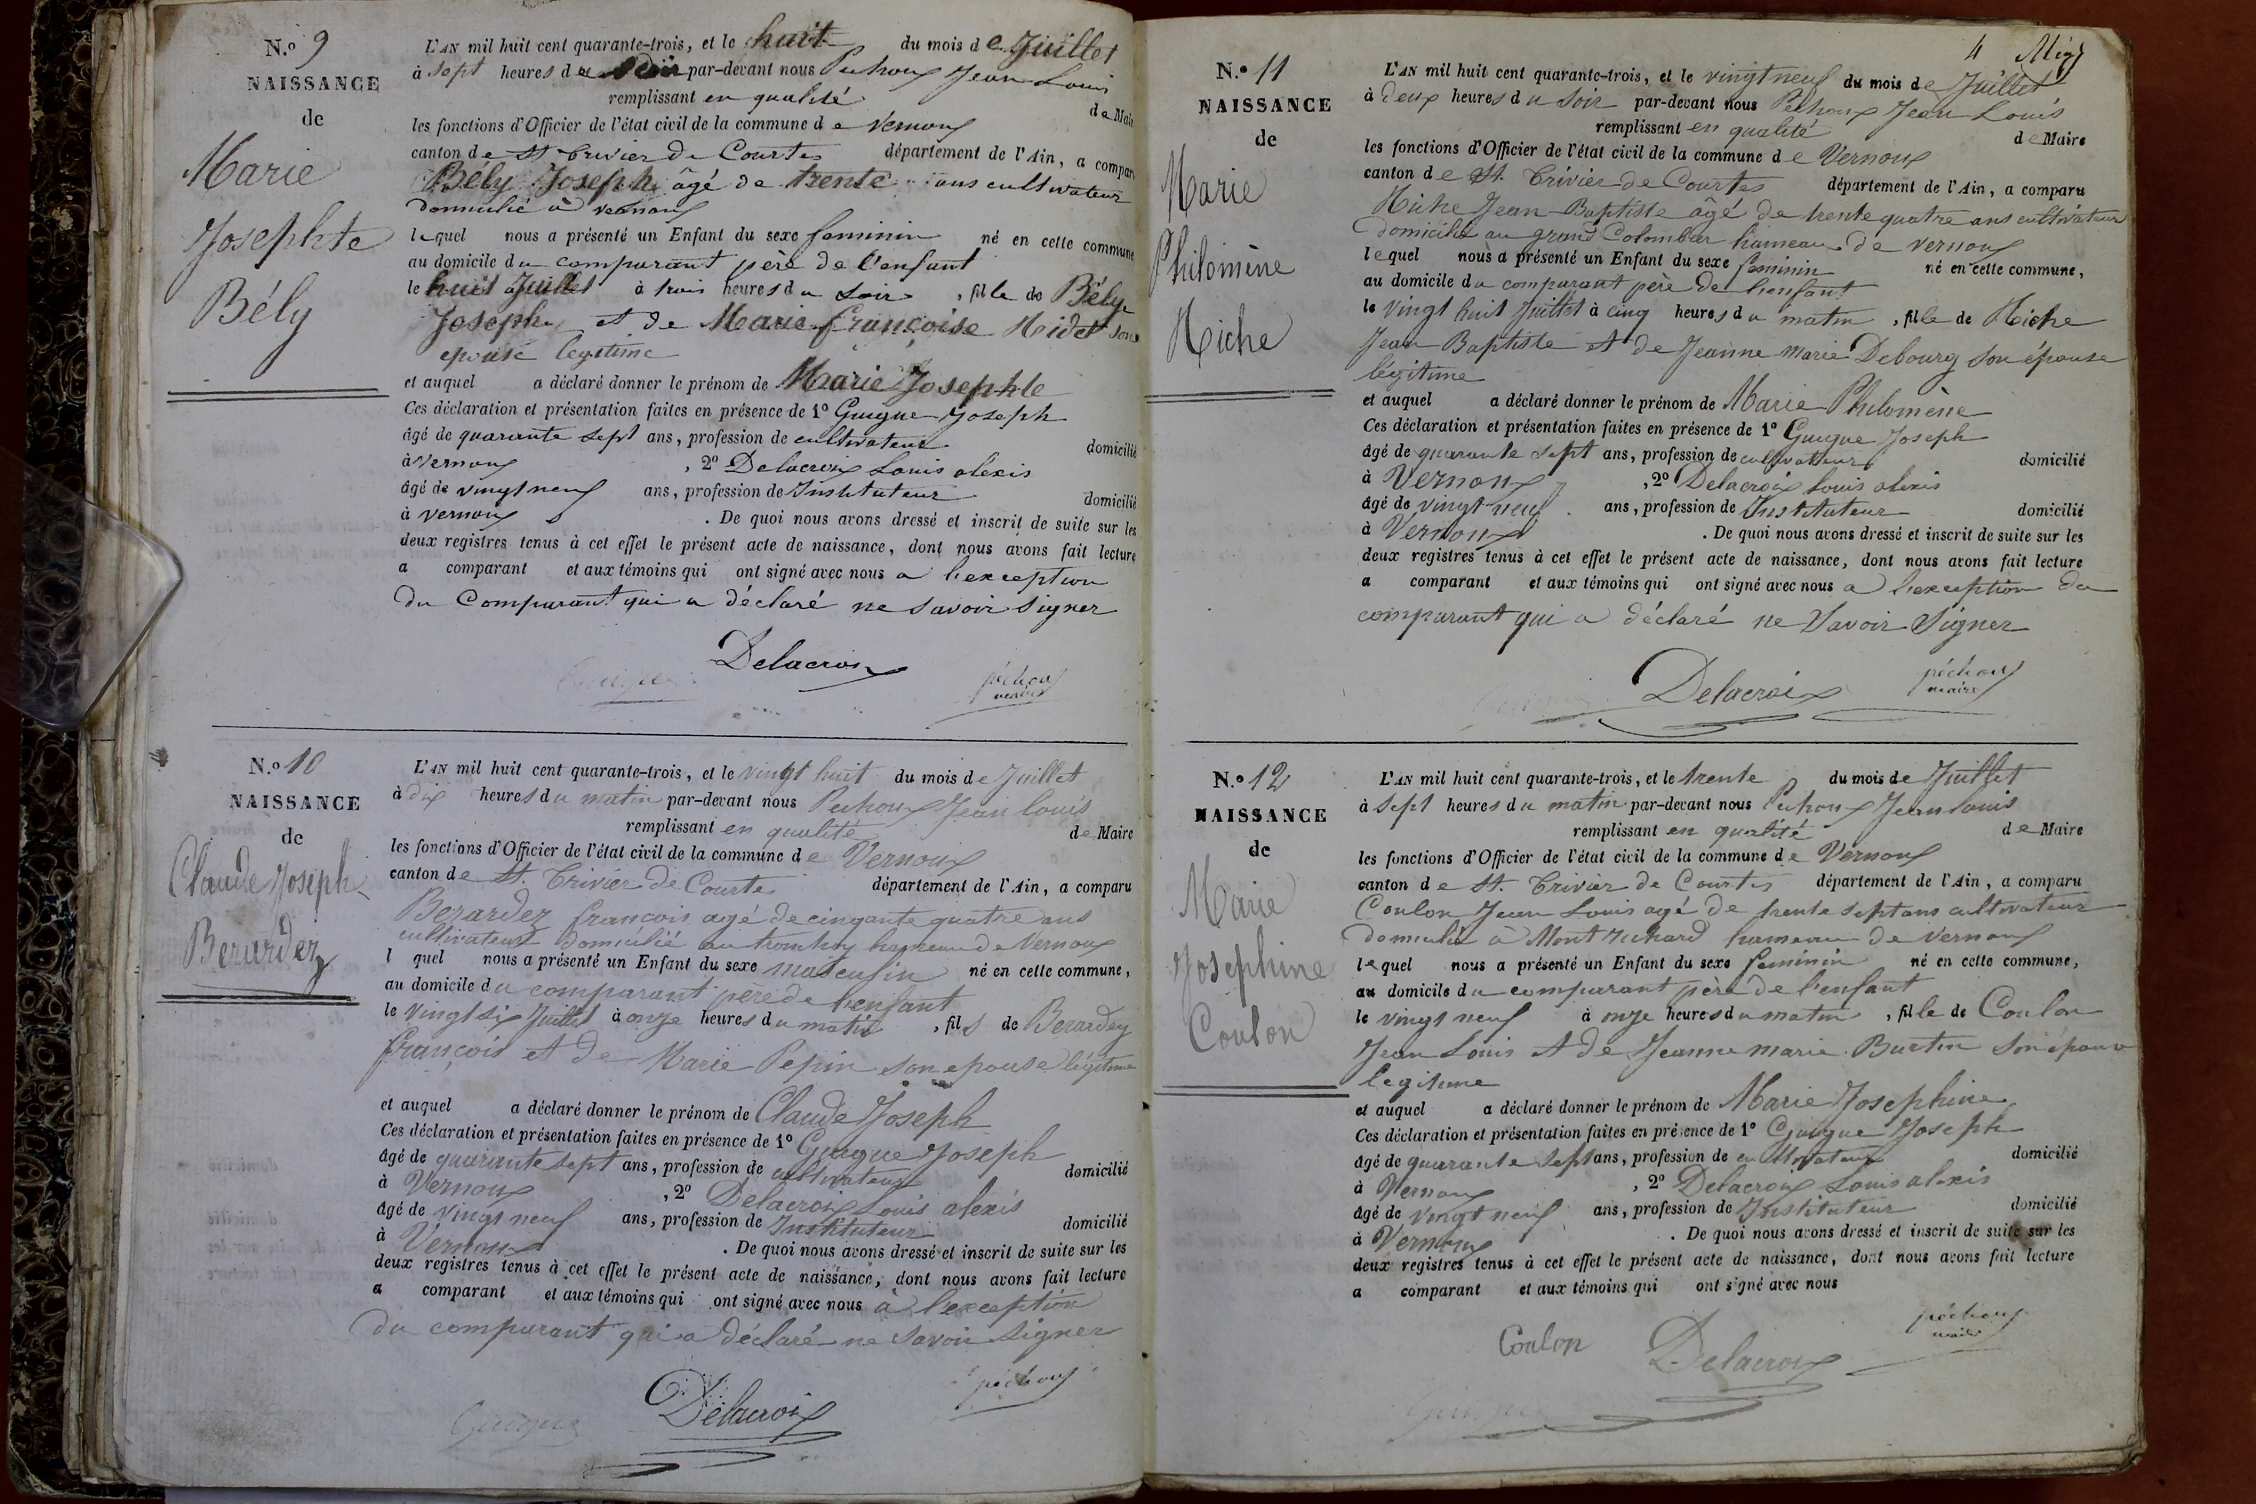 N.º 9
NAISSANCE
de
Marie
Josephte
Bély
L'AN mil huit cent quarante-trois, et le huit du mois de Juillet
à sept heures du soir par-devant nous Puhoux Jean Louis
remplissant en qualité de Maire
les fonctions d'Officier de l'état civil de la commune de Vernoux
canton de St Trivier de Courtes département de l'Ain, a comparu
Bély Joseph âgé de trente ans cultivateur
domicilié à vernoux
lequel nous a présenté un Enfant du sexe feminin né en cette commune
au domicile du comparant père de l'enfant
le huit Juillet à trois heures du soir, fille de Bély
Joseph et de Marie françoise Nidet son
epouse legitime
et auquel a déclaré donner le prénom de Marie Josephte
Ces déclaration et présentation faites en présence de 1º Guigue Joseph
âgé de quarante sept ans, profession de cultivateur domicilié
à vernoux, 2º Delacroix Louis alexis
âgé de vingt neuf ans, profession de Instituteur domicilié
à vernoux. De quoi nous avons dressé et inscrit de suite sur les
deux registres tenus à cet effet le présent acte de naissance, dont nous avons fait lecture
a comparant et aux témoins qui ont signé avec nous a l'exception
du Comparant qui a déclaré ne savoir signer
Guigue Delacroix péchoux
maire
N.º 10
NAISSANCE
de
Claude Joseph
Berardez
L'AN mil huit cent quarante-trois, et le vingt huit du mois de Juillet
à dix heures du matin par-devant nous Puhoux Jean Louis
remplissant en qualité de Maire
les fonctions d'Officier de l'état civil de la commune de Vernoux
canton de St. Trivier de Courtes département de l'Ain, a comparu
Berardez françois agé de cinqante quatre ans
cultivateur domicilié au hameau de Vernoux
l quel nous a présenté un Enfant du sexe masculin né en cette commune,
au domicile du comparant père de l'enfant
le vingt six Juillet à onze heures du matin, fils de Berardez
françois et de Marie Pepin son epouse légitime
et auquel a déclaré donner le prénom de Claude Joseph
Ces déclaration et présentation faites en présence de 1º Guigue Joseph
âgé de quarante sept ans, profession de cultivateur domicilié
à Vernoux, 2º Delacroix Louis alexis
âgé de vingt neuf ans, profession de Instituteur domicilié
à Vernoux. De quoi nous avons dressé et inscrit de suite sur les
deux registres tenus à cet effet le présent acte de naissance, dont nous avons fait lecture
a comparant et aux témoins qui ont signé avec nous à l'exception
du comparant qui a déclaré ne savoir signer
Guigue Delacroix péchoux
4
N.º 11
NAISSANCE
de
Marie
Philomène
Niche
L'AN mil huit cent quarante-trois, et le vingt neuf du mois de Juillet
à deux heures du soir par-devant nous Puhoux Jean Louis
remplissant en qualité de Maire
les fonctions d'Officier de l'état civil de la commune de Vernoux
canton de St. Trivier de Courtes département de l'Ain, a comparu
Niche Jean Baptiste âgé de trente quatre ans cultivateur
domicilié au grand Colombier hameau de vernoux
lequel nous a présenté un Enfant du sexe feminin né en cette commune,
au domicile du comparant père de l'enfant
le vingt huit Juillet à cinq heures du matin, fille de Niche
Jean Baptiste et de Jeanne Marie Debourg son épouse
légitime
et auquel a déclaré donner le prénom de Marie Philomène
Ces déclaration et présentation faites en présence de 1º Guigue Joseph
âgé de quarante sept ans, profession de cultivateur domicilié
à Vernoux, 2º Delacroix Louis alexis
âgé de vingt neuf ans, profession de Instituteur domicilié
à Vernoux. De quoi nous avons dressé et inscrit de suite sur les
deux registres tenus à cet effet le présent acte de naissance, dont nous avons fait lecture
a comparant et aux témoins qui ont signé avec nous a l'exception du
comparant qui a déclaré ne Savoir Signer
Delacroix péchoux
maire
N.º 12
NAISSANCE
de
Marie
Josephine
Coulon
L'AN mil huit cent quarante-trois, et le trente du mois de Juillet
à sept heures du matin par-devant nous Puhoux Jean Louis
remplissant en qualité de Maire
les fonctions d'Officier de l'état civil de la commune de Vernoux
canton de St. Trivier de Courtes département de l'Ain, a comparu
Coulon Jean Louis agé de trente sept ans cultivateur
domicilié à Mont hameau de vernoux
lequel nous a présenté un Enfant du sexe feminin né en cette commune,
au domicile du comparant père de l'enfant
le vingt neuf à onze heures du matin, fille de Coulon
Jean Louis et de Jeanne marie Burtin son épouse
legitime
et auquel a déclaré donner le prénom de Marie Josephine
Ces déclaration et présentation faites en présence de 1º Guigue Joseph
âgé de quarante sept ans, profession de cultivateur domicilié
à Vernoux, 2º Delacroix Louis alexis
âgé de vingt neuf ans, profession de Instituteur domicilié
à Vernoux. De quoi nous avons dressé et inscrit de suite sur les
deux registres tenus à cet effet le présent acte de naissance, dont nous avons fait lecture
a comparant et aux témoins qui ont signé avec nous
Coulon Delacroix péchoux
maire